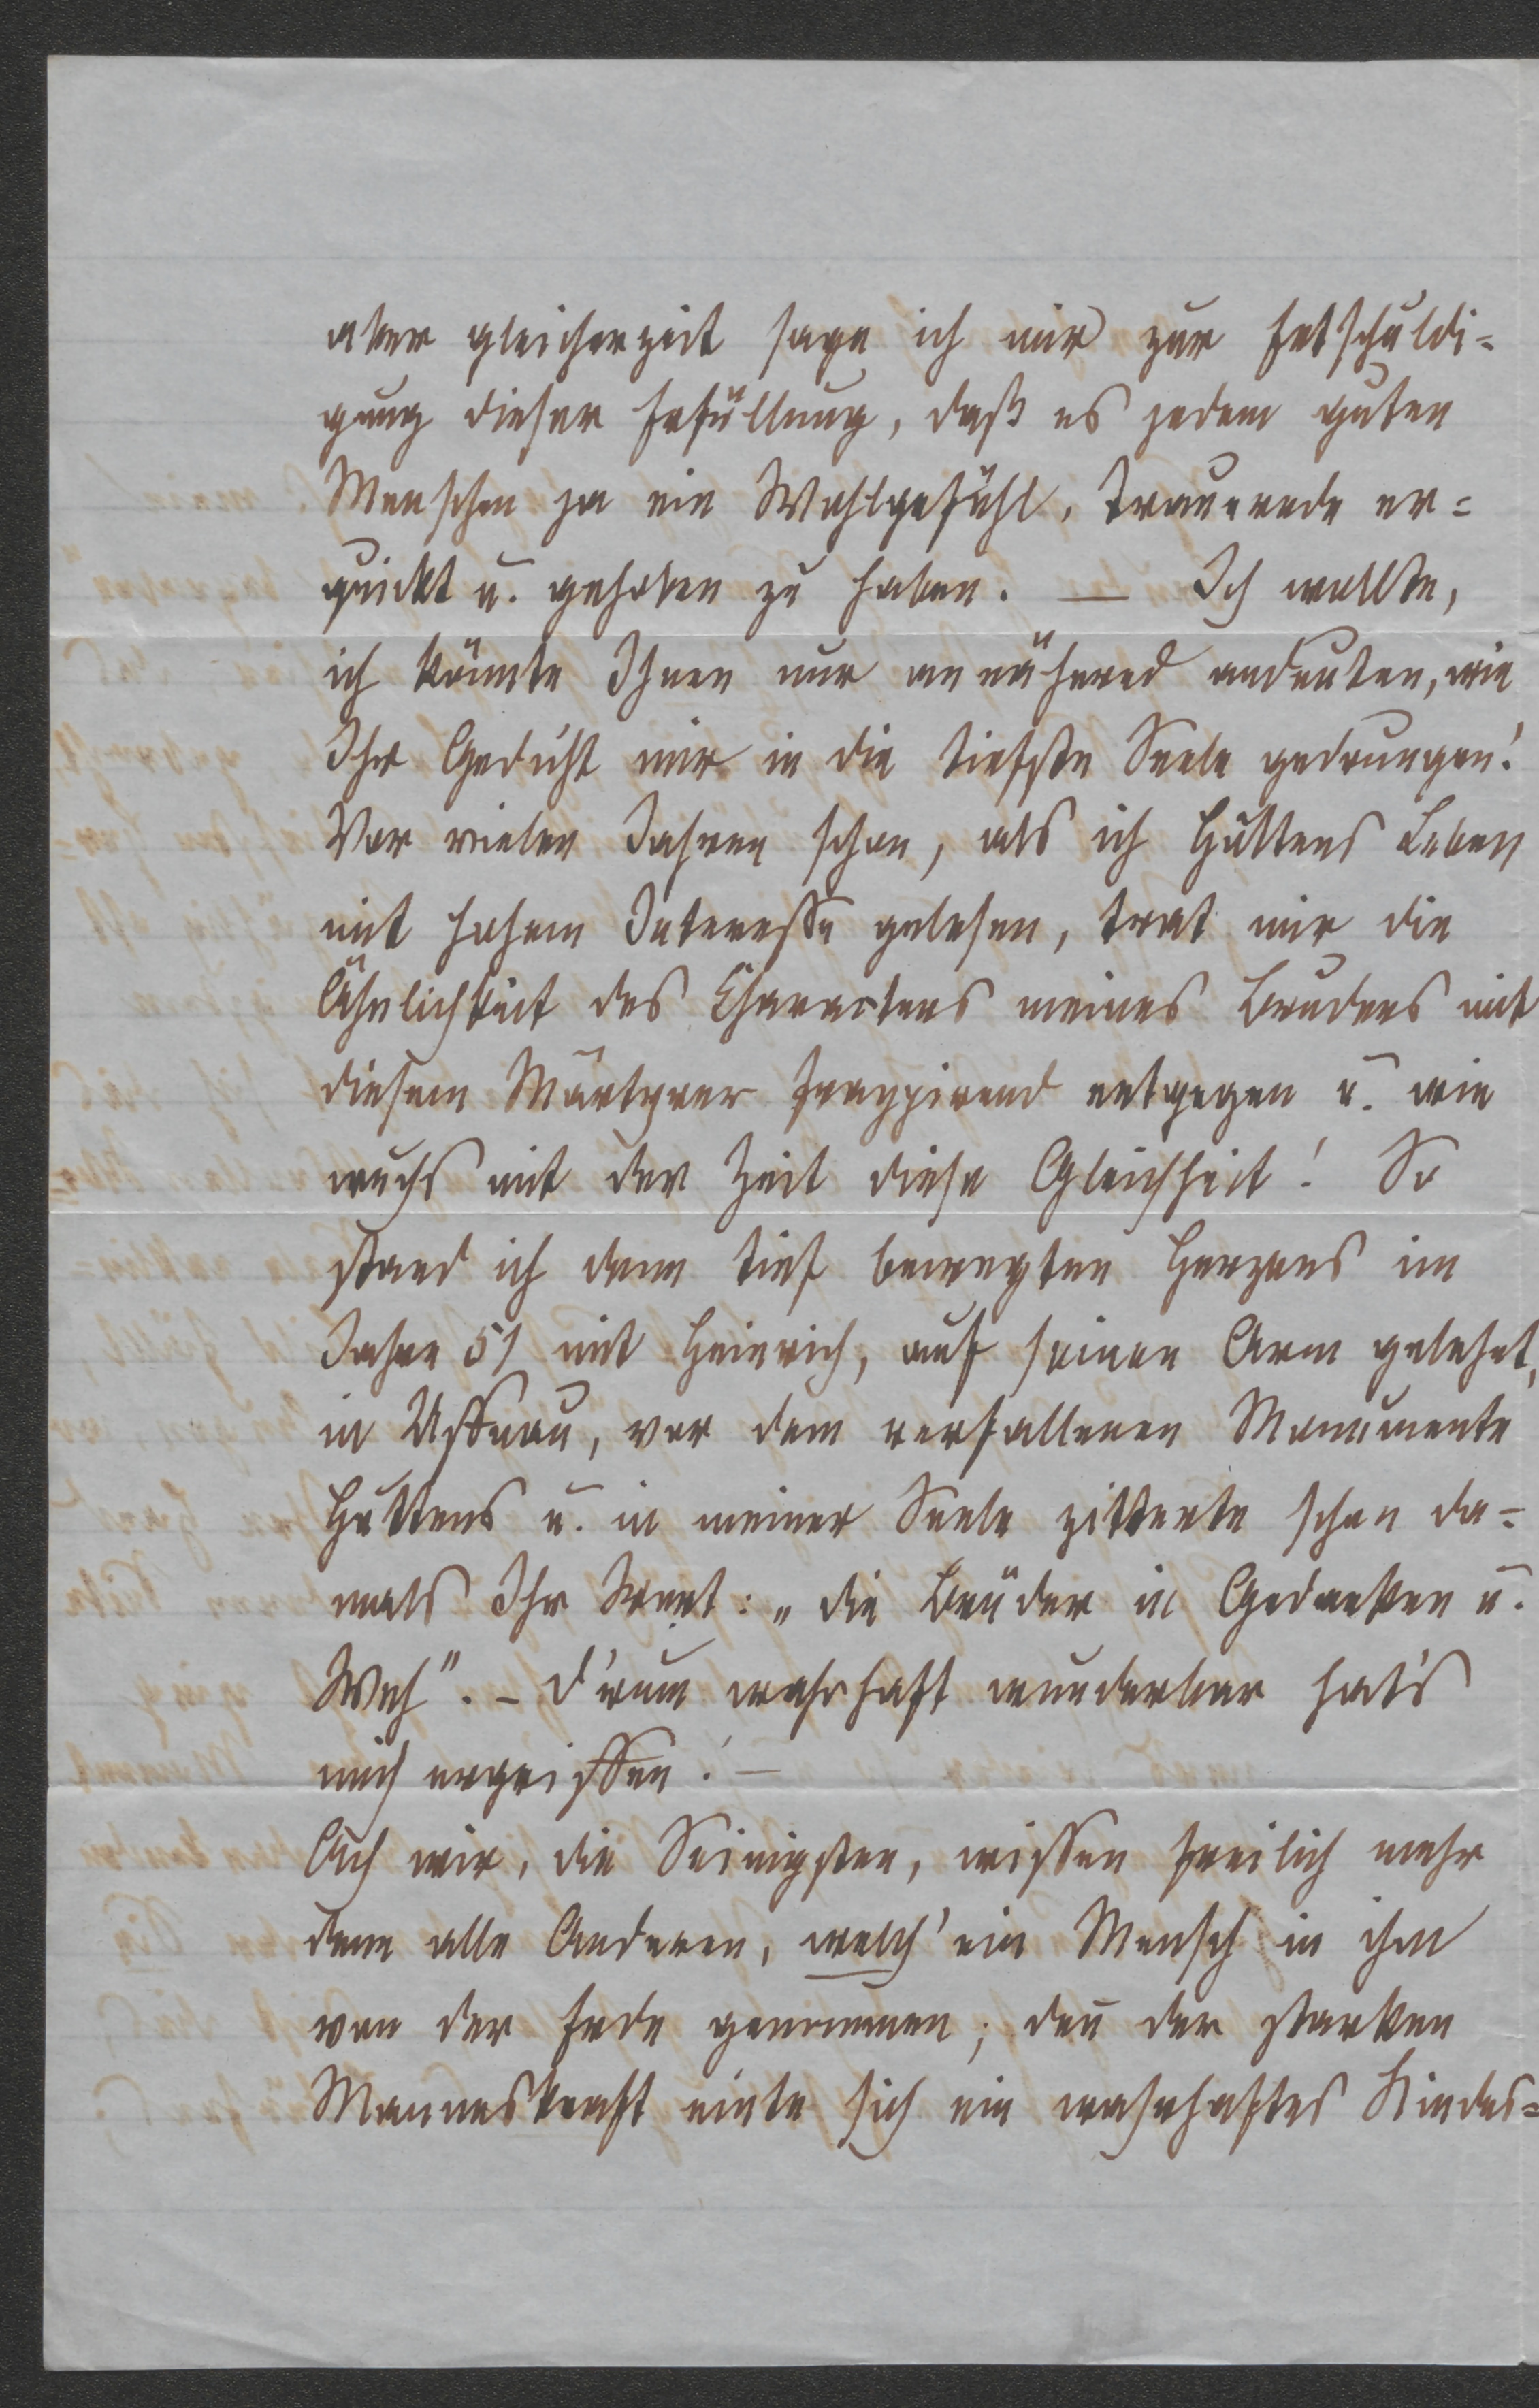 aber gleicherzeit sage ich mir zur Entschuldi=
gung dieser Erfüllung, daß es jedem guten
Menschen ja ein Wohlgefühl, Trauernde er=
quickt u. gehoben zu haben. — Ich wollte,
ich könnte Ihnen nur annähernd andeuten, wie
Ihr Gedicht mir in die tiefste Seele gedrungen!
Vor vielen Jahren schon, als ich Huttens Leben
mit hohem Interesse gelesen, trat mir die
Ähnlichkeit des Charakters meines Bruders mit
diesem Märtyrer frappirend entgegen u. wie
wuchs mit der Zeit diese Gleichheit! So
stand ich denn tief bewegten Herzens im
Jahre 51 mit Heinrich, auf seinen Arm gelehnt,
in Uffnau, vor dem verfallenen Monumente
Huttens u. in meiner Seele zitterte schon da=
mals Ihr Wort: „die Brüder in Gedanken u.
Weh". – D'rum wahrhaft wunderbar hat's
mich ergriffen! —
Ach wir, die Seinigsten, wissen freilich mehr
denn alle Anderen, welch' ein Mensch in ihm
von der Erde genommen; den̅ der starken
Manneskraft einte sich ein wahrhaftes Kindes=